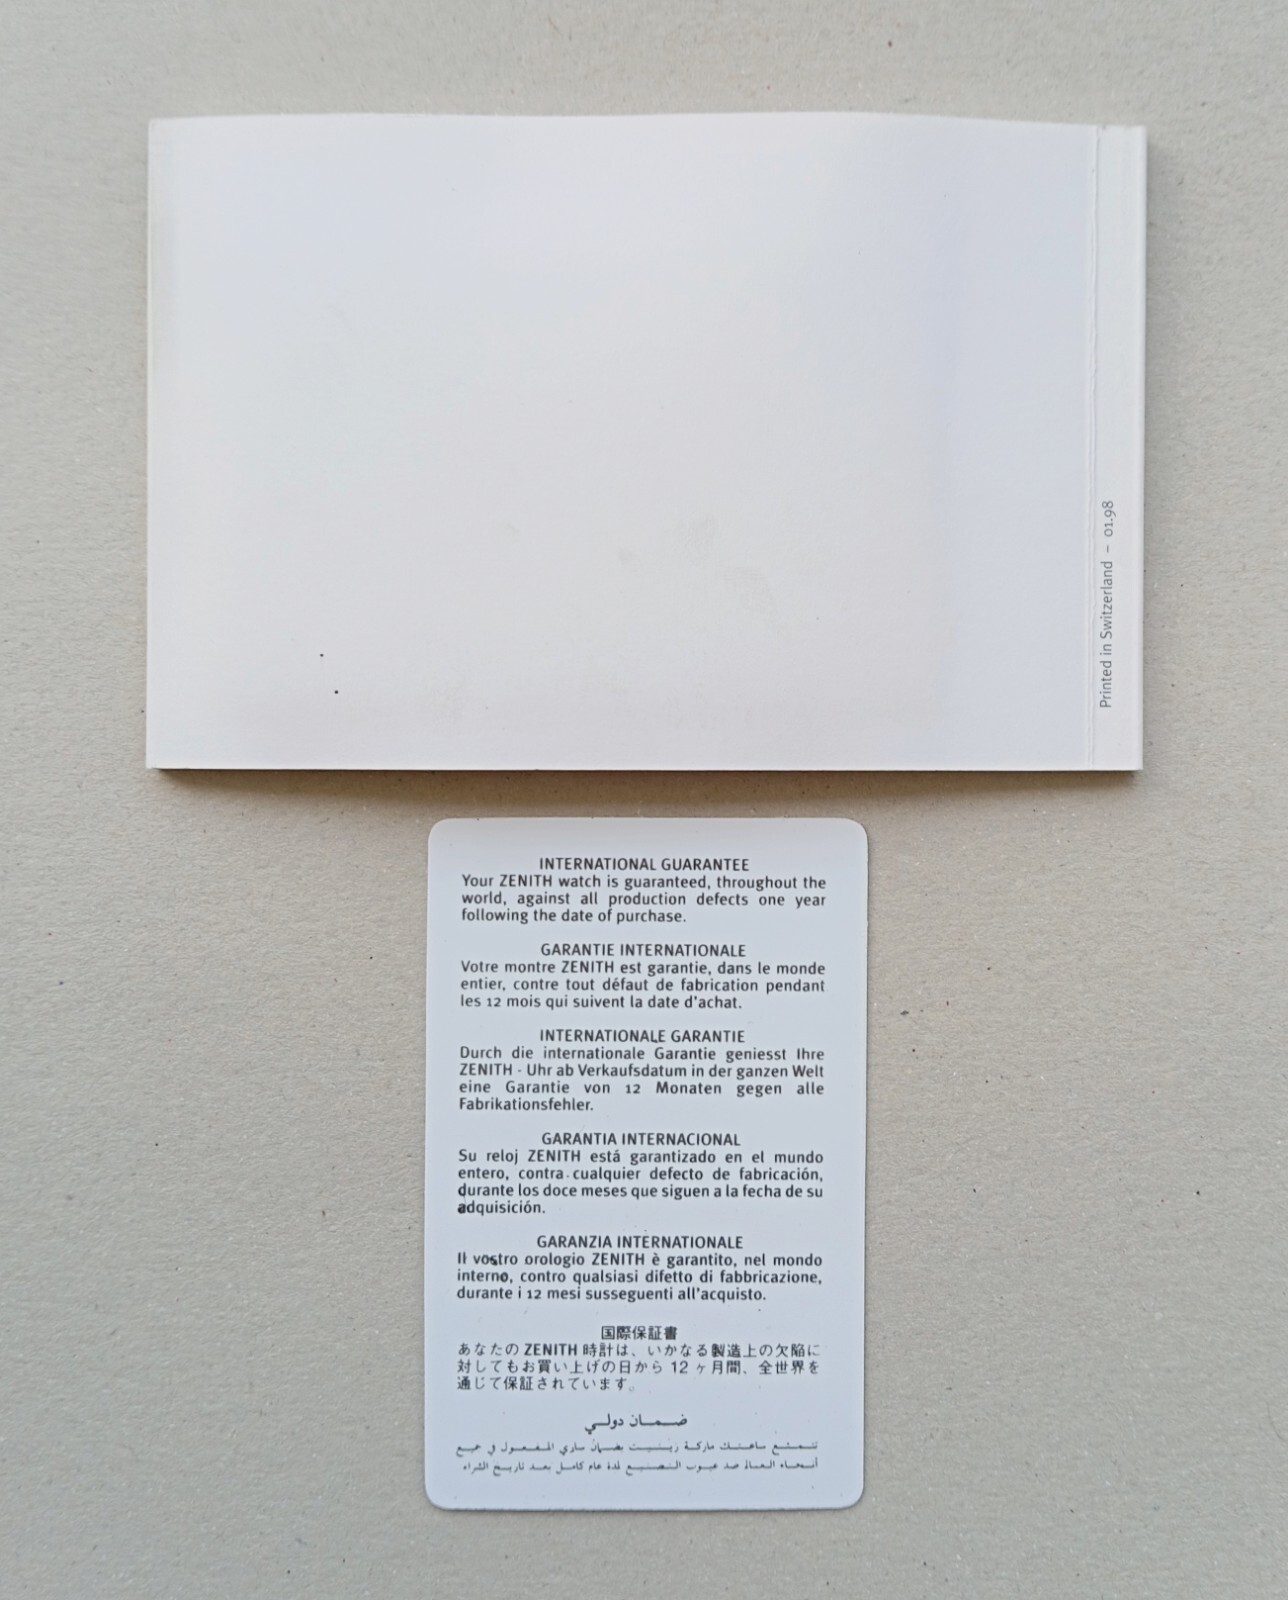 Printed in Switzerland – 01.98
INTERNATIONAL GUARANTEE
Your ZENITH watch is guaranteed, throughout the
world, against all production defects one year
following the date of purchase.
GARANTIE INTERNATIONALE
Votre montre ZENITH est garantie, dans le monde
entier, contre tout défaut de fabrication pendant
les 12 mois qui suivent la date d'achat.
INTERNATIONALE GARANTIE
Durch die internationale Garantie geniesst Ihre
ZENITH - Uhr ab Verkaufsdatum in der ganzen Welt
eine Garantie von 12 Monaten gegen alle
Fabrikationsfehler.
GARANTIA INTERNACIONAL
Su reloj ZENITH está garantizado en el mundo
entero, contra cualquier defecto de fabricación,
durante los doce meses que siguen a la fecha de su
adquisición.
GARANZIA INTERNATIONALE
Il vostro orologio ZENITH è garantito, nel mondo
interno, contro qualsiasi difetto di fabbricazione,
durante i 12 mesi susseguenti all'acquisto.
国際保証書
あなたの ZENITH 時計は、いかなる製造上の欠陥に
対してもお買い上げの日から 12 ヶ月間、全世界を
通じて保証されています。
ضمان دولي
تتمتع ساعتك ماركة زينيت بضمان ساري المفعول في جميع
أنحاء العالم ضد عيوب التصنيع لمدة عام كامل بعد تاريخ الشراء